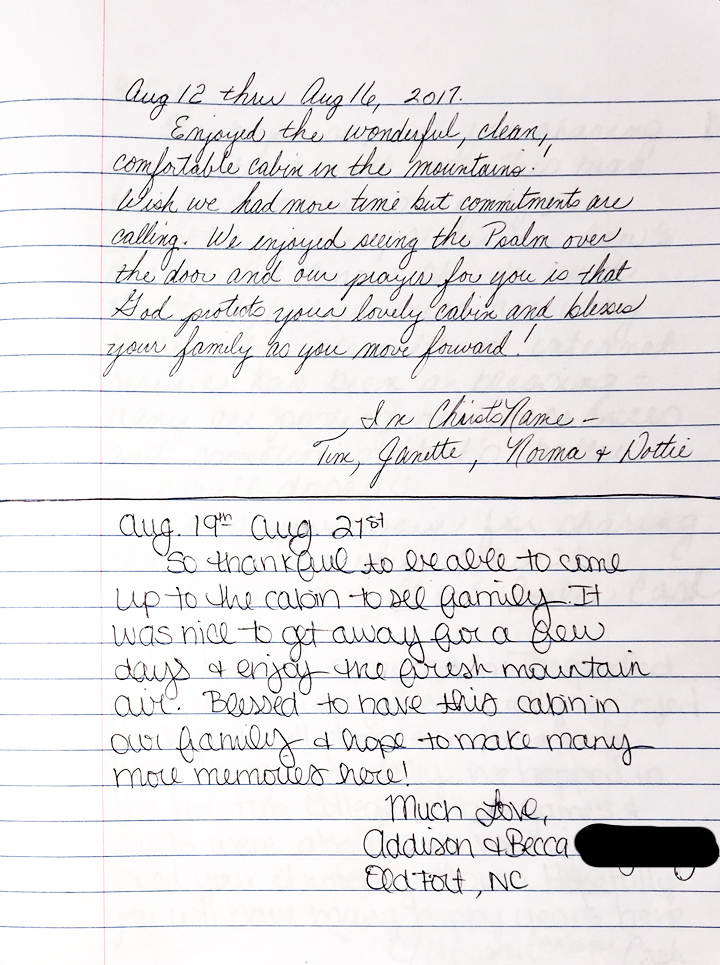 Aug 12 thru Aug 16, 2017.
Enjoyed the wonderful, clean,
comfortable cabin in the mountains.
Wish we had more time but commitments are
calling. We enjoyed seeing the Psalm over
the door and our prayer for you is that
God protects your lovely cabin and blesses
your family as you move forward!
In Christ's Name -
Tim, Janette, Norma & Dottie
Aug. 19th Aug. 21st
So thankful to be able to come
up to the cabin to see family. It
was nice to get away for a few
days & enjoy the fresh mountain
air. Blessed to have this cabin in
our family & hope to make many
more memories here!
Much Love,
Addison & Becca
Old Fort, NC